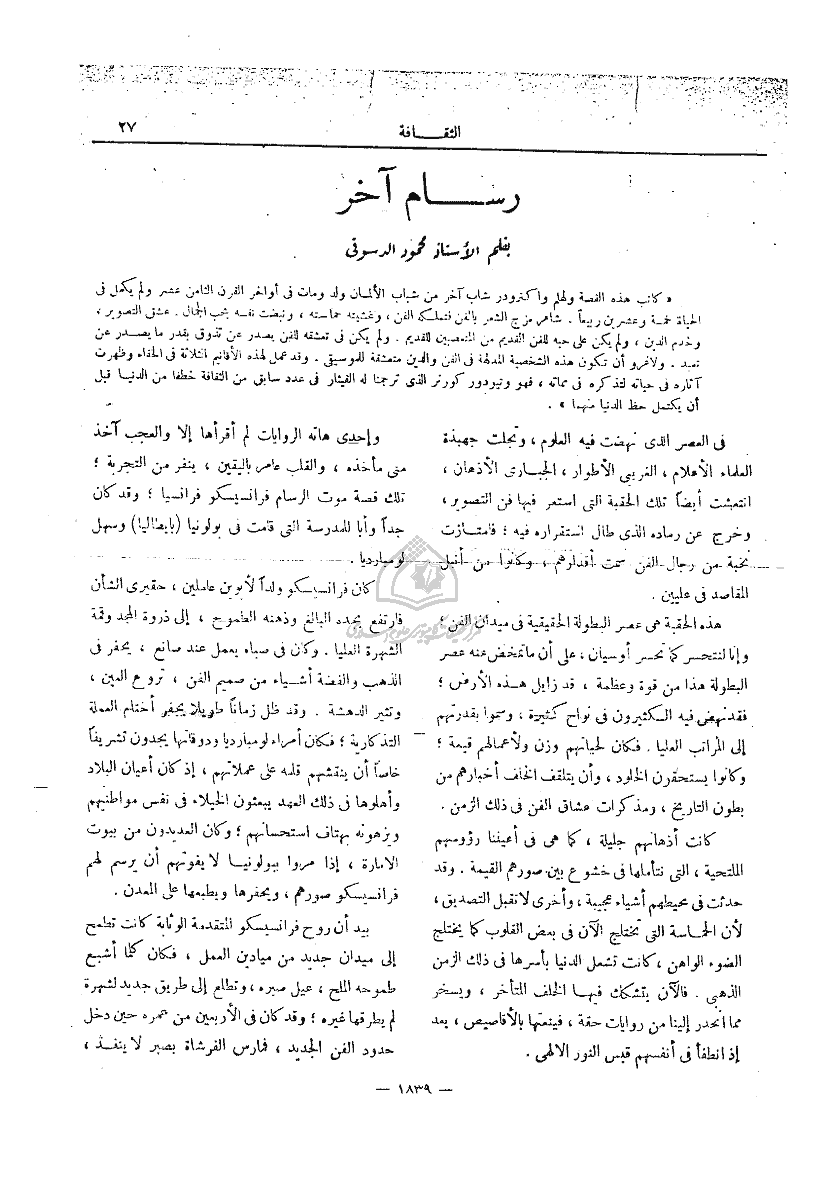 ٢٧
الثقـــافة
رســـــام آخر
بقلم الأستاذ محمود الدسوقى
« كاتب هذه القصة ولهلم واكنرودر شاب آخر من شباب الألمان ولد ومات فى أواخر القرن الثامن عشر ولم يكمل فى
الحياة خمسة وعشرين ربيعاً . شاعر مزج الشعر بالفن فتملكه الفن ، وغشيته حماسته ، ونبضت نفسه بحب الجمال . عشق التصوير ،
وخدم الدين ، ولم يكن على حبه للفن القديم من المتعصبين للقديم . ولم يكن فى تعشقه للفن يصدر عن تذوق بقدر ما يصدر عن
تعبد . ولا غرو أن تكون هذه الشخصية المدلهة فى الفن والدين متعشقة للموسيقى . وقد عمل لهذه الأقانيم الثلاثة فى الخفاء وظهرت
آثاره فى حياته لتذكره فى مماته ، فهو وتيودور كورنر الذى ترجمنا له القيثار فى عدد سابق من الثقافة خطفا من الدنيا قبل
أن يكتمل حظ الدنيا منهما » .
فى العصر الذى نهضت فيه العلوم ، وتجلت جهبذة
العلماء الأعلام ، الغريبى الأطوار ، الجبارى الأذهان ،
انتعشت أيضاً تلك الحقبة التى استعر فيها فن التصوير ،
وخرج عن رماده الذى طال استقراره فيه ؛ فامتازت
نخبة من رجال الفن سمت أقدارهم ، وكانوا من أنبل
المقاصد فى عليين .
هذه الحقبة هى عصر البطولة الحقيقية فى ميدان الفن ؛
وإنا لنتحسر كما تحسر أوسيان ، على أن ما تمخض عنه عصر
البطولة هذا من قوة وعظمة ، قد زايل هــذه الأرض ؛
فقد نهض فيه الكثيرون فى نواح كثيرة ، وسموا بقدرتهم
إلى المراتب العليا . فكان لحياتهم وزن ولأعمالهم قيمة ؛
وكانوا يستحقون الخلود ، وأن يتلقف الخلف أخبارهم من
بطون التاريخ ، ومذكرات عشاق الفن فى ذلك الزمن .
كانت أذهانهم جليلة ، كما هى فى أعيننا رؤوسهم
الملتحية ، التى نتأملها فى خشوع بين صورهم القيمة . وقد
حدثت فى محيطهم أشياء عجيبة ، وأخرى لا تقبل التصديق ،
لأن الحماسة التى تختلج الآن فى بعض القلوب كما يختلج
الضوء الواهن ، كانت تشعل الدنيا بأسرها فى ذلك الزمن
الذهبى . فالآن يتشكك فيهــا الخلف المتأخر ، ويسخر
مما انحدر إلينا من روايات حقة ، فينعتها بالأقاصيص ، بعد
إذ انطفأ فى أنفسهم قبس النور الالهى .
وإحدى هاته الروايات لم أقرأها إلا والعجب آخذ
منى مأخذه ، والقلب عامر باليقين ، ينفر من التجربة ؛
تلك قصة موت الرسام فرانسيسكو فرانسيا ؛ وقد كان
جداً وأبا للمدرسة التى قامت فى بولونيا (بايطاليا) وسهل
لومبارديا .
كان فرانسيسكو ولداً لأبوين عاملين ، حقيرى الشأن
فارتفع بجده البالغ وذهنه الطموح ، إلى ذروة المجد وقمة
الشهرة العليا . وكان فى صباه يعمل عند صانع ، يحفر فى
الذهب والفضة أشيـاء من صميم الفن ، تروع العين ،
وتثير الدهشة . وقد ظل زماناً طويلا يحفر أختام العملة
التذكارية ؛ فكان أمراء لومبارديا ودوقاتها يجدون تشريفاً
خاصاً أن ينقشهم قلمه على عملاتهم ، إذ كان أعيان البلاد
وأهلوها فى ذلك العهد يبعثون الخيلاء فى نفس مواطنيهم
ويزهونه بهتاف استحسانهم ؛ وكان العديدون من بيوت
الامارة ، إذا مروا ببولونيـا لا يفوتهم أن يرسم لهم
فرانسيسكو صورهم ، ويحفرها ويطبعها على المعدن .
بيد أن روح فرانسيسكو المتقدمة الوثابة كانت تطمح
إلى ميدان جديد من ميادين العمل ، فكان كلما أشبع
طموحه الملح ، عيل صبره ، وتطلع إلى طريق جديد لشهرة
لم يطرقها غيره ؛ وقد كان فى الأربعين من عمره حين دخل
حدود الفن الجديد ، فمارس الفرشاة بصبر لا ينفــد ،
— ١٨٣٩ —